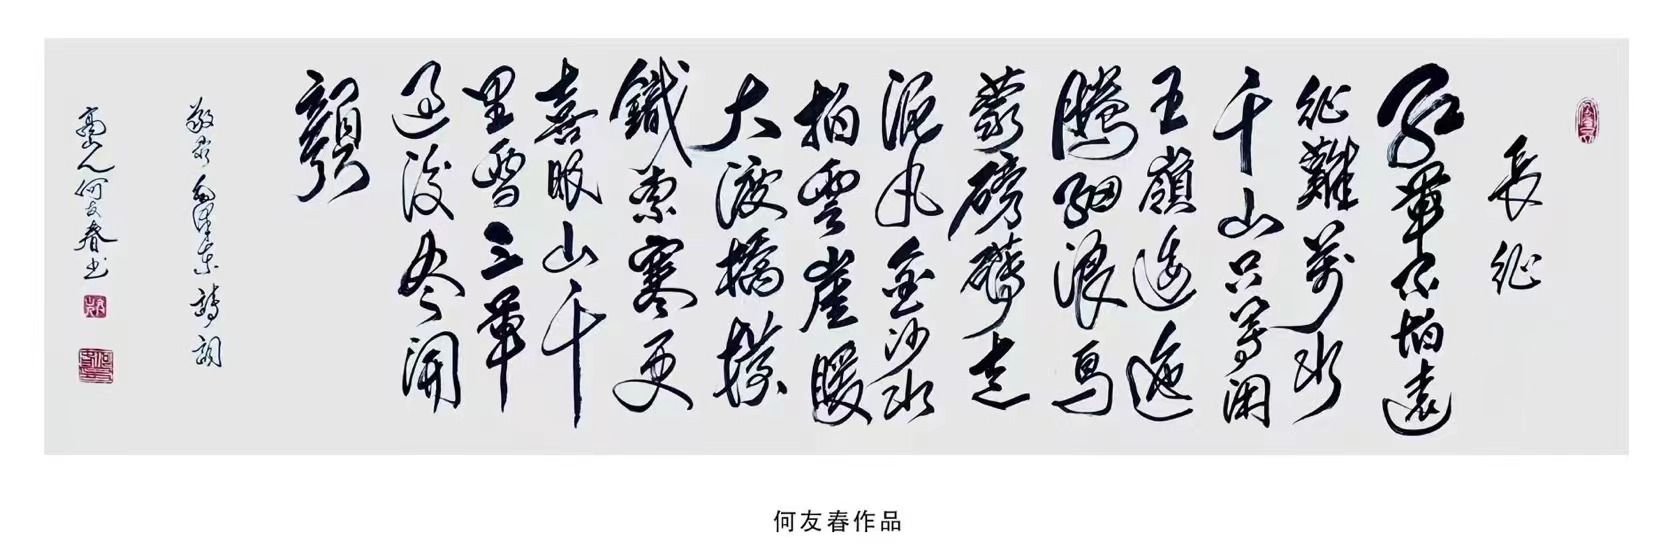 長征
紅軍不怕遠
征難萬水
千山只等闲
五嶺逶迤
騰細浪烏
蒙磅礴走
泥丸金沙水
拍雲崖暖
大渡橋横
鐵索寒更
喜岷山千
里雪三軍
过後尽開
顏
敬录毛澤東詩詞
何友春书
何友春作品